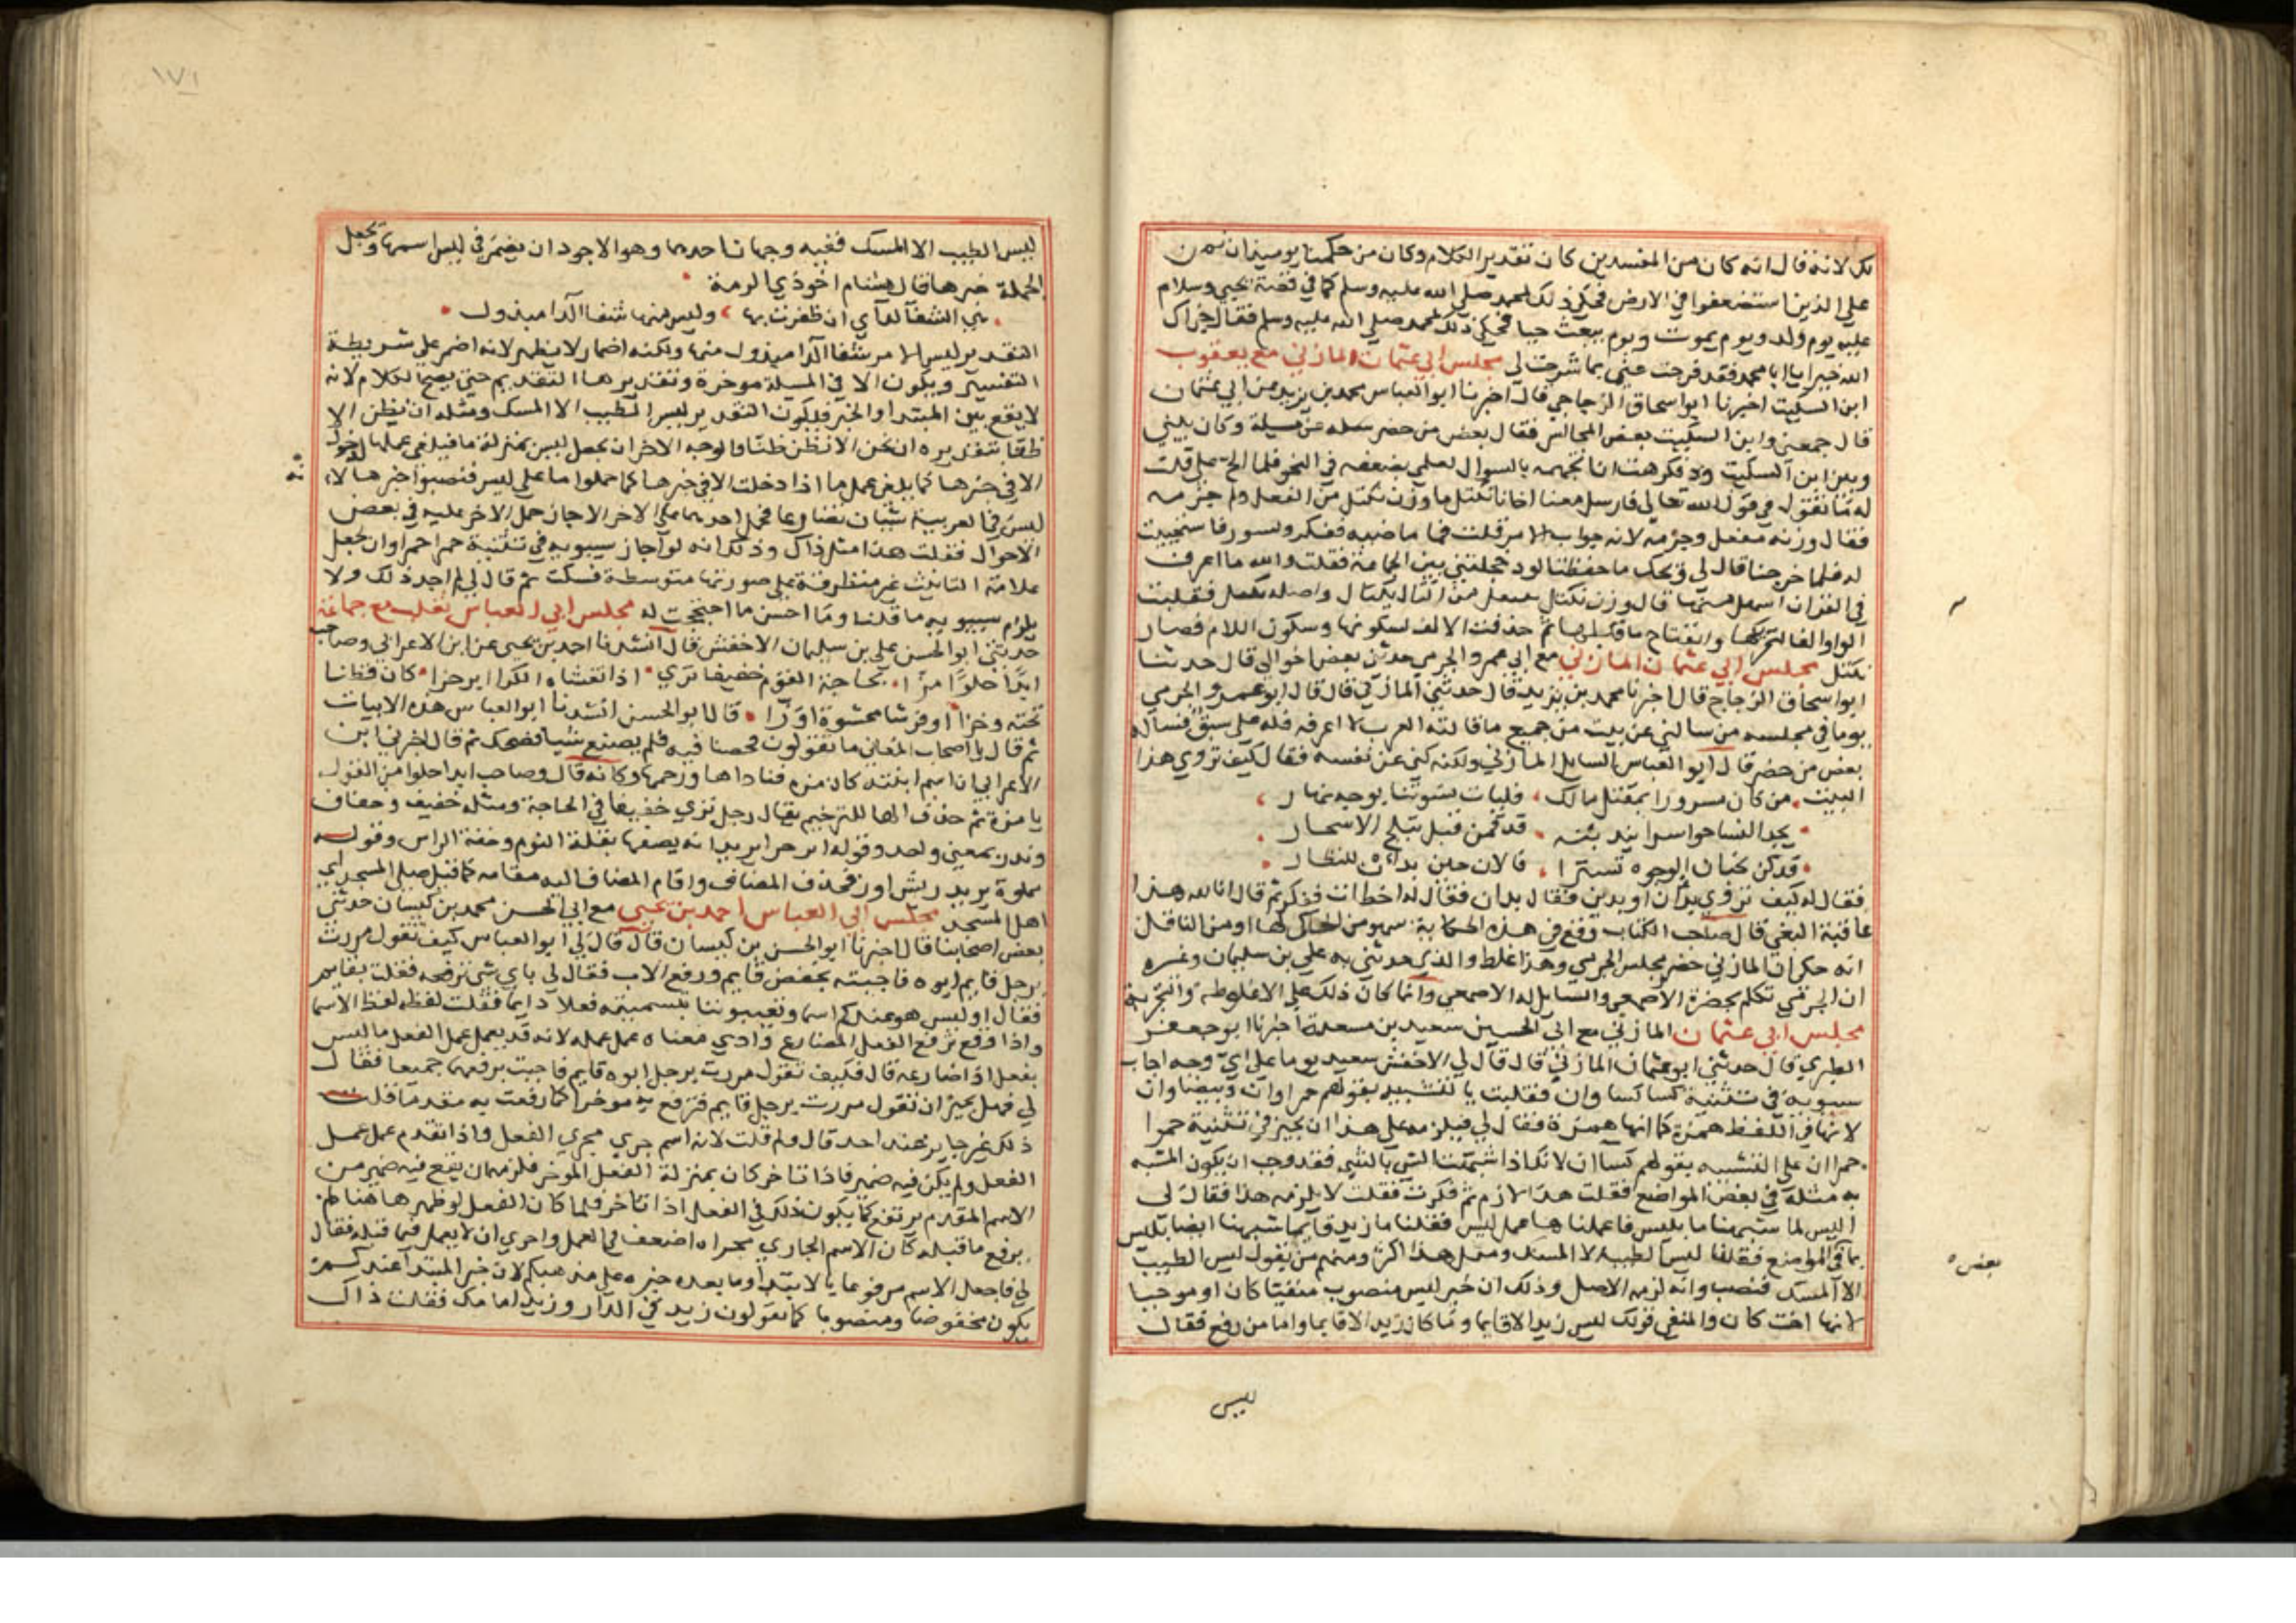 لك لانه قال انه كان من المفسدين كان تقدير الكلام وكان من حكمنا يومئذ ان نمن
علي الذين استضعفوا في الارض فحكي ذلك لمحمد صلي الله عليه وسلم كما في قصة يحيي وسلام
عليه يوم ولد ويوم يموت ويوم يبعث حيا فحكي ذلك لمحمد صلي الله عليه وسلم فقال جزاك
الله خيرا يا ابا محمد فقد فرجت عني بما شرحت لي مجلس ابي عثمان المازني مع يعقوب
ابن السكيت اخبرنا ابو اسحاق الزجاجي قال اخبرنا ابو العباس محمد بن يزيد عن ابي عثمان
قال جمعني وابن السكيت بعض المجالس فقال بعض من حضر سله عن مسيلة وكان بيني
وبين ابن السكيت ود فكرهت ان اتجهمه بالسوال لعلمي بضعفه في النحو فلما الح علي قلت
له ما تقول في قول الله تعالي فارسل معنا اخانا نكتل ما وزن نكتل من الفعل ولم جزمه
فقال وزنه نفعل وجزمه لانه جواب الامر قلت فما ماضيه ففكر وتسور فاستحييت
له فلما خرجنا قال لي ويحك ما حفظت الود خجلتني بين الجماعة فقلت والله ما اعرف
في القران اسهل منها قال وزن نكتل نفتعل من اكتال يكتال واصله نكتيل فقلبت
الواو الفا لتحركها وانفتاح ما قبلها ثم حذفت الالف لسكونها وسكون اللام فصار
نكتل مجلس ابي عثمان المازني مع ابي عمر والجرمي حدثني بعض اخواني قال حدثنا
ابو اسحاق الزجاج قال اخبرنا محمد بن يزيد قال حدثني المازني قال قال ابو عمرو الجرمي
يوما في مجلسه من سالني عن بيت من جميع ما قالته العرب لا اعرفه فله علي سبق فساله
بعض من حضر قال ابو العباس السايل المازني ولكنه كني عن نفسه فقال كيف تروي هذا
البيت من كان مسرورا بمقتل مالك فليات نسوتنا بوجه نهار
يجد النسا حواسرا يندبنه قد قمن قبل تبلج الاسحار
قد كن يخبان الوجوه تسترا فالان حين بدان للنظار
فقال له كيف تروي بدان او بدين فقال بدان فقال له اخطات ففكر ثم قال انا لله هذا
عاقبة البغي قال صاحب الكتاب وقع في هذه الحكاية سهو من الحاكي لها او من الناقل
انه حكي ان المازني حضر مجلس الجرمي وهذا غلط والذي حدثني به علي بن سليمان وغيره
ان الجرمي تكلم بحضرة الاصمعي والسايل له الاصمعي وانما كان ذلك علي الاغلوطه والتجربة
مجلس ابي عثمان المازني مع ابي الحسين سعيد بن مسعدة اخبرنا ابو جعفر
الطبري قال حدثني ابو عثمان المازني قال قال لي الاخفش سعيد يوما علي اي وجه اجاب
سيبويه في تثنية كسا كساوان فقلت بالتشبيه بقولهم حمراوان وبيضاوان
لانها في اللفظ همزة كما انها همزة فقال لي فيلزمه علي هذا ان يجيز في تثنية حمرا
حمراان علي التشبيه بقولهم كساان لانك اذا شبهت الشي بالشي فقد وجب ان يكون المشبه
به مثله في بعض المواضع فقلت هذا لازم ثم فكرت فقلت لا يلزمه هذا فقال لي
اليس لما شبهنا ما بليس فاعملناها عمل ليس فقلنا ما زيد قايما شبهنا ايضا بليس
بما في المواضع فقلنا ليس الطيب الا المسك ومثل هذا اكثر ومنهم من يقول ليس الطيب
الا المسك فنصب وانه لزمه الاصل وذلك ان خبر ليس منصوب منفيا كان او موجبا
لانها اخت كان والمنفي قولك ليس زيد الا قايما وما كان زيد الا قايما واما من رفع فقال
بعض
ليس
١٧١
ليس الطيب الا المسك ففيه وجهان احدهما وهو الاجود ان يضمر في ليس اسمها ويجعل
الجملة خبرها قال هشام اخو ذي الرمة
هي الشفا لداي ان ظفرت بها وليس منها شفا الدا مبذول
التقدير ليس الامر شفا الدا مبذول منها ولكنه اضمار لا يظهر لانه اضمر علي شريطة
التفسير ويكون الا في المسلة موخرة وتقديرها التقديم حتي يصح الكلام لانه
لا يقع بين المبتدا والخبر فيكون التقدير ليس الا الطيب المسك ومثله ان نظن الا
ظنا تقديره ان نحن الا نظن ظنا والوجه الاخر ان يجعل ليس بمنزلة ما فيلغي عملها لدخول
الا في خبرها كما يلغي عمل ما اذا دخلت الا في خبرها كما حملوا ما علي ليس فنصبوا خبرها لانه
ليس في العربية شيان تضارعا فحمل احدهما علي الاخر الا جاز حمل الاخر عليه في بعض
الاحوال فقلت هذا مثل ذاك وذلك انه لو اجاز سيبويه في تثنية حمرا حمراوان لجعل
علامة التانيث غير متطرفة علي صورتها متوسطة فسكت ثم قال لي لم اجد ذلك ولا
يلزم سيبويه ما قلنا وما احسن ما احتججت له مجلس ابي العباس ثعلب مع جماعة
حدثني ابو الحسن علي بن سليمان الاخفش قال انشدنا احمد بن يحيي عن ابن الاعرابي وصاحب
ابدا حلوا مزا بحاجة القوم خفيفا نزي اذا تغشاه الكرا ابرحزا كان قطنا
تحته وخزا او فرشا محشوة اوزا قال ابو الحسن انشدنا ابو العباس هذه الابيات
ثم قال يا اصحاب المعاني ما تقولون فخضنا فيه فلم يصنع شيا فضحك ثم قال اخبرني ابن
الاعرابي ان اسم ابنته كان مزه فناداها ورخمها وكانه قال وصاحب ابدا حلوا من القول
يا مزة ثم حذف الها للترخيم يقال رجل نزي خفيفا في الحاجة ومثله خفيف وخفاف
وندب بمعني واحد وقوله ابرحزا يريد انه يصفها بقلة النوم وخفة الراس وقوله
مملوة يريد ريش اوز فحذف المضاف واقام المضاف اليه مقامه كما قيل صلي المسجد اي
اهل المسجد مجلس ابي العباس احمد بن يحيي مع ابي الحسن محمد بن كيسان حدثني
بعض اصحابنا قال اخبرنا ابو الحسن بن كيسان قال قال لي ابو العباس كيف تقول مررت
برجل قايم ابوه فاجبته بخفض قايم ورفع الاب فقال لي باي شي ترفعه فقلت بقايم
فقال اوليس هو عندكم اسما وتعيبوننا بتسميته فعلا دايما فقلت لفظه لفظ الاسما
واذا وقع موقع الفعل المضارع وادي معناه عمل عمله لانه قد يعمل عمل الفعل ما ليس
بفعل اذا ضارعه قال فكيف تقول مررت برجل ابوه قايم فاجبت برفعهما جميعا فقال
لي فهل يجيز ان تقول مررت برجل قايم فترفع به موخرا كما رفعت به مقدما قلت
ذلك غير جايز عند احد قال ولم قلت لانه اسم جري مجري الفعل فاذا تقدم عمل عمل
الفعل ولم يكن فيه ضمير فاذا تاخر كان بمنزلة الفعل الموخر فلزمه ان يقع فيه ضمير من
الاسم المقدم يرتفع كما يكون ذلك في الفعل اذا تاخر فلما كان الفعل لو ظهر هاهنا لم
يرفع ما قبله كان الاسم الجاري مجراه اضعف في العمل واحري ان لا يعمل فيما قبله فقال
لي فاجعل الاسم مرفوعا بالابتدا وما بعده خبره علي مذهبكم لان خبر المبتدا عندكم
يكون مخفوضا ومنصوبا كما تقولون زيد في الدار وزيد امامك فقلت ذاك